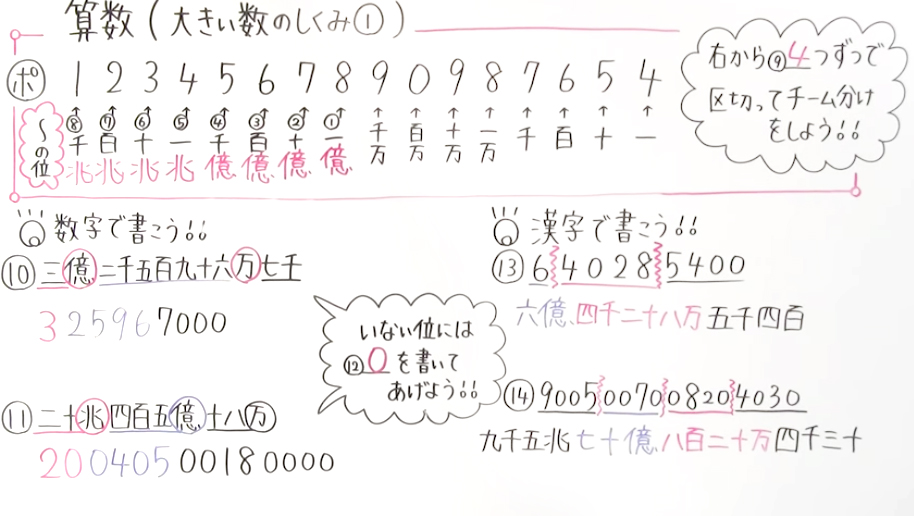 算数(大きい数のしくみ①)
ポ 1 2 3 4 5 6 7 8 9 0 9 8 7 6 5 4
〜の位
⑧千兆 ⑦百兆 ⑥十兆 ⑤一兆 ④千億 ③百億 ②十億 ①一億 千万 百万 十万 一万 千 百 十 一
右から⑨4つずつで
区切ってチーム分け
をしよう!!
数字で書こう!!
⑩三億二千五百九十六万七千
325967000
⑪二十兆四百五億十八万
20040500180000
いない位には
⑫0を書いて
あげよう!!
漢字で書こう!!
⑬6 4028 5400
六億、四千二十八万五千四百
⑭9005 0070 0820 4030
九千五兆七十億、八百二十万四千三十